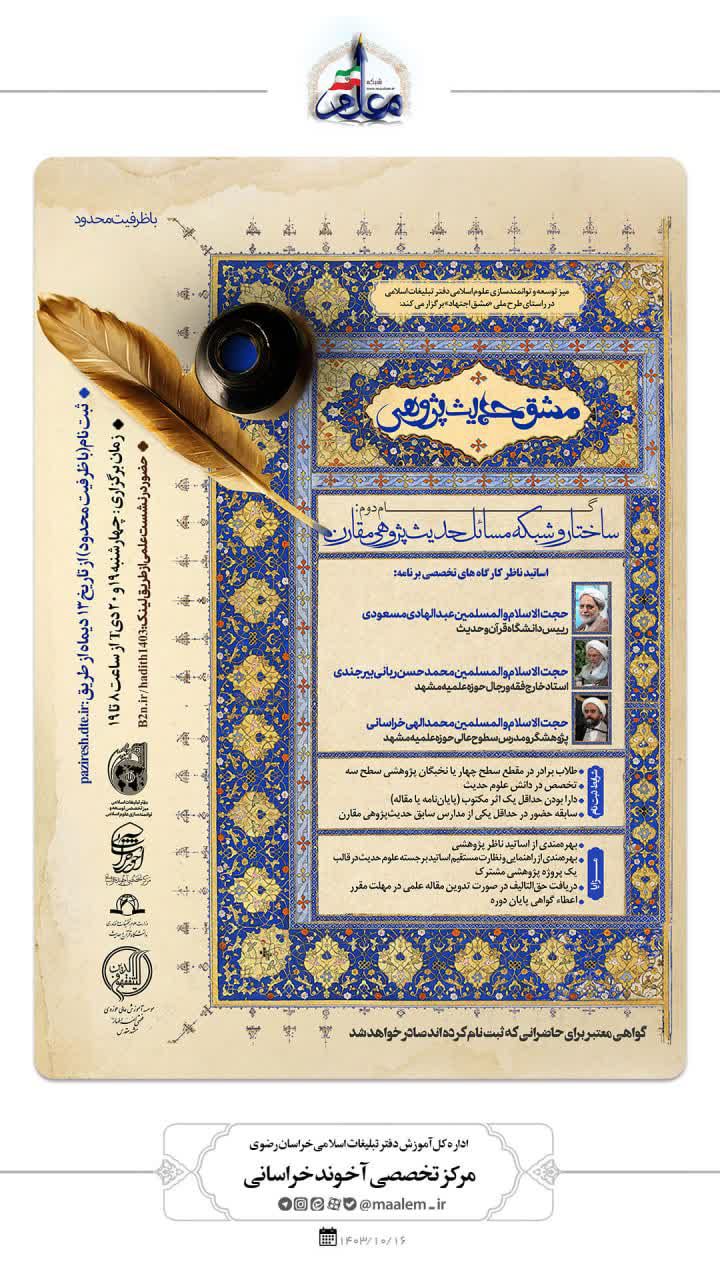 شبکه
معلم
با ظرفیت محدود
میز توسعه و توانمندسازی علوم اسلامی دفتر تبلیغات اسلامی
در راستای طرح ملی «مشق اجتهاد» برگزار می کند:
مشق حدیث پژوهی
گام دوم:
ساختار و شبکه مسائل حدیث پژوهی مقارن
اساتید ناظر کارگاه های تخصصی برنامه:
حجت الاسلام والمسلمین عبدالهادی مسعودی
رییس دانشگاه قرآن و حدیث
حجت الاسلام والمسلمین محمد حسن ربانی بیرجندی
استاد خارج فقه و رجال حوزه علمیه مشهد
حجت الاسلام والمسلمین محمد الهی خراسانی
پژوهشگر و مدرس سطوح عالی حوزه علمیه مشهد
شرایط ثبت نام
طلاب برادر در مقطع سطح چهار یا نخبگان پژوهشی سطح سه
تخصص در دانش علوم حدیث
دارا بودن حداقل یک اثر مکتوب (پایان‌نامه یا مقاله)
سابقه حضور در حداقل یکی از مدارس سابق حدیث‌پژوهی مقارن
مزایا
بهره‌مندی از اساتید ناظر پژوهشی
بهره‌مندی از راهنمایی و نظارت مستقیم اساتید برجسته علوم حدیث در قالب
یک پروژه پژوهشی مشترک
دریافت حق‌التالیف در صورت تدوین مقاله علمی در مهلت مقرر
اعطاء گواهی پایان دوره
ثبت نام (با ظرفیت محدود) از تاریخ ۱۳ دیماه از طریق: paziresh.dte.ir
زمان برگزاری: چهارشنبه ۱۹ و ۲۰ دی از ساعت ۸ تا ۱۹
حضور در نشست علمی از طریق لینک: B2n.ir/hadith1403
دفتر تبلیغات اسلامی
میز تخصصی توسعه و
توانمندسازی علوم اسلامی
مرکز تخصصی آخوند خراسانی
دانشگاه قرآن و حدیث
موسسه آموزش عالی حوزوی
گواهی معتبر برای حاضرانی که ثبت نام کرده اند صادر خواهد شد
اداره کل آموزش دفتر تبلیغات اسلامی خراسان رضوی
مرکز تخصصی آخوند خراسانی
@maalem_ir
۱۴۰۳/۱۰/۱۶